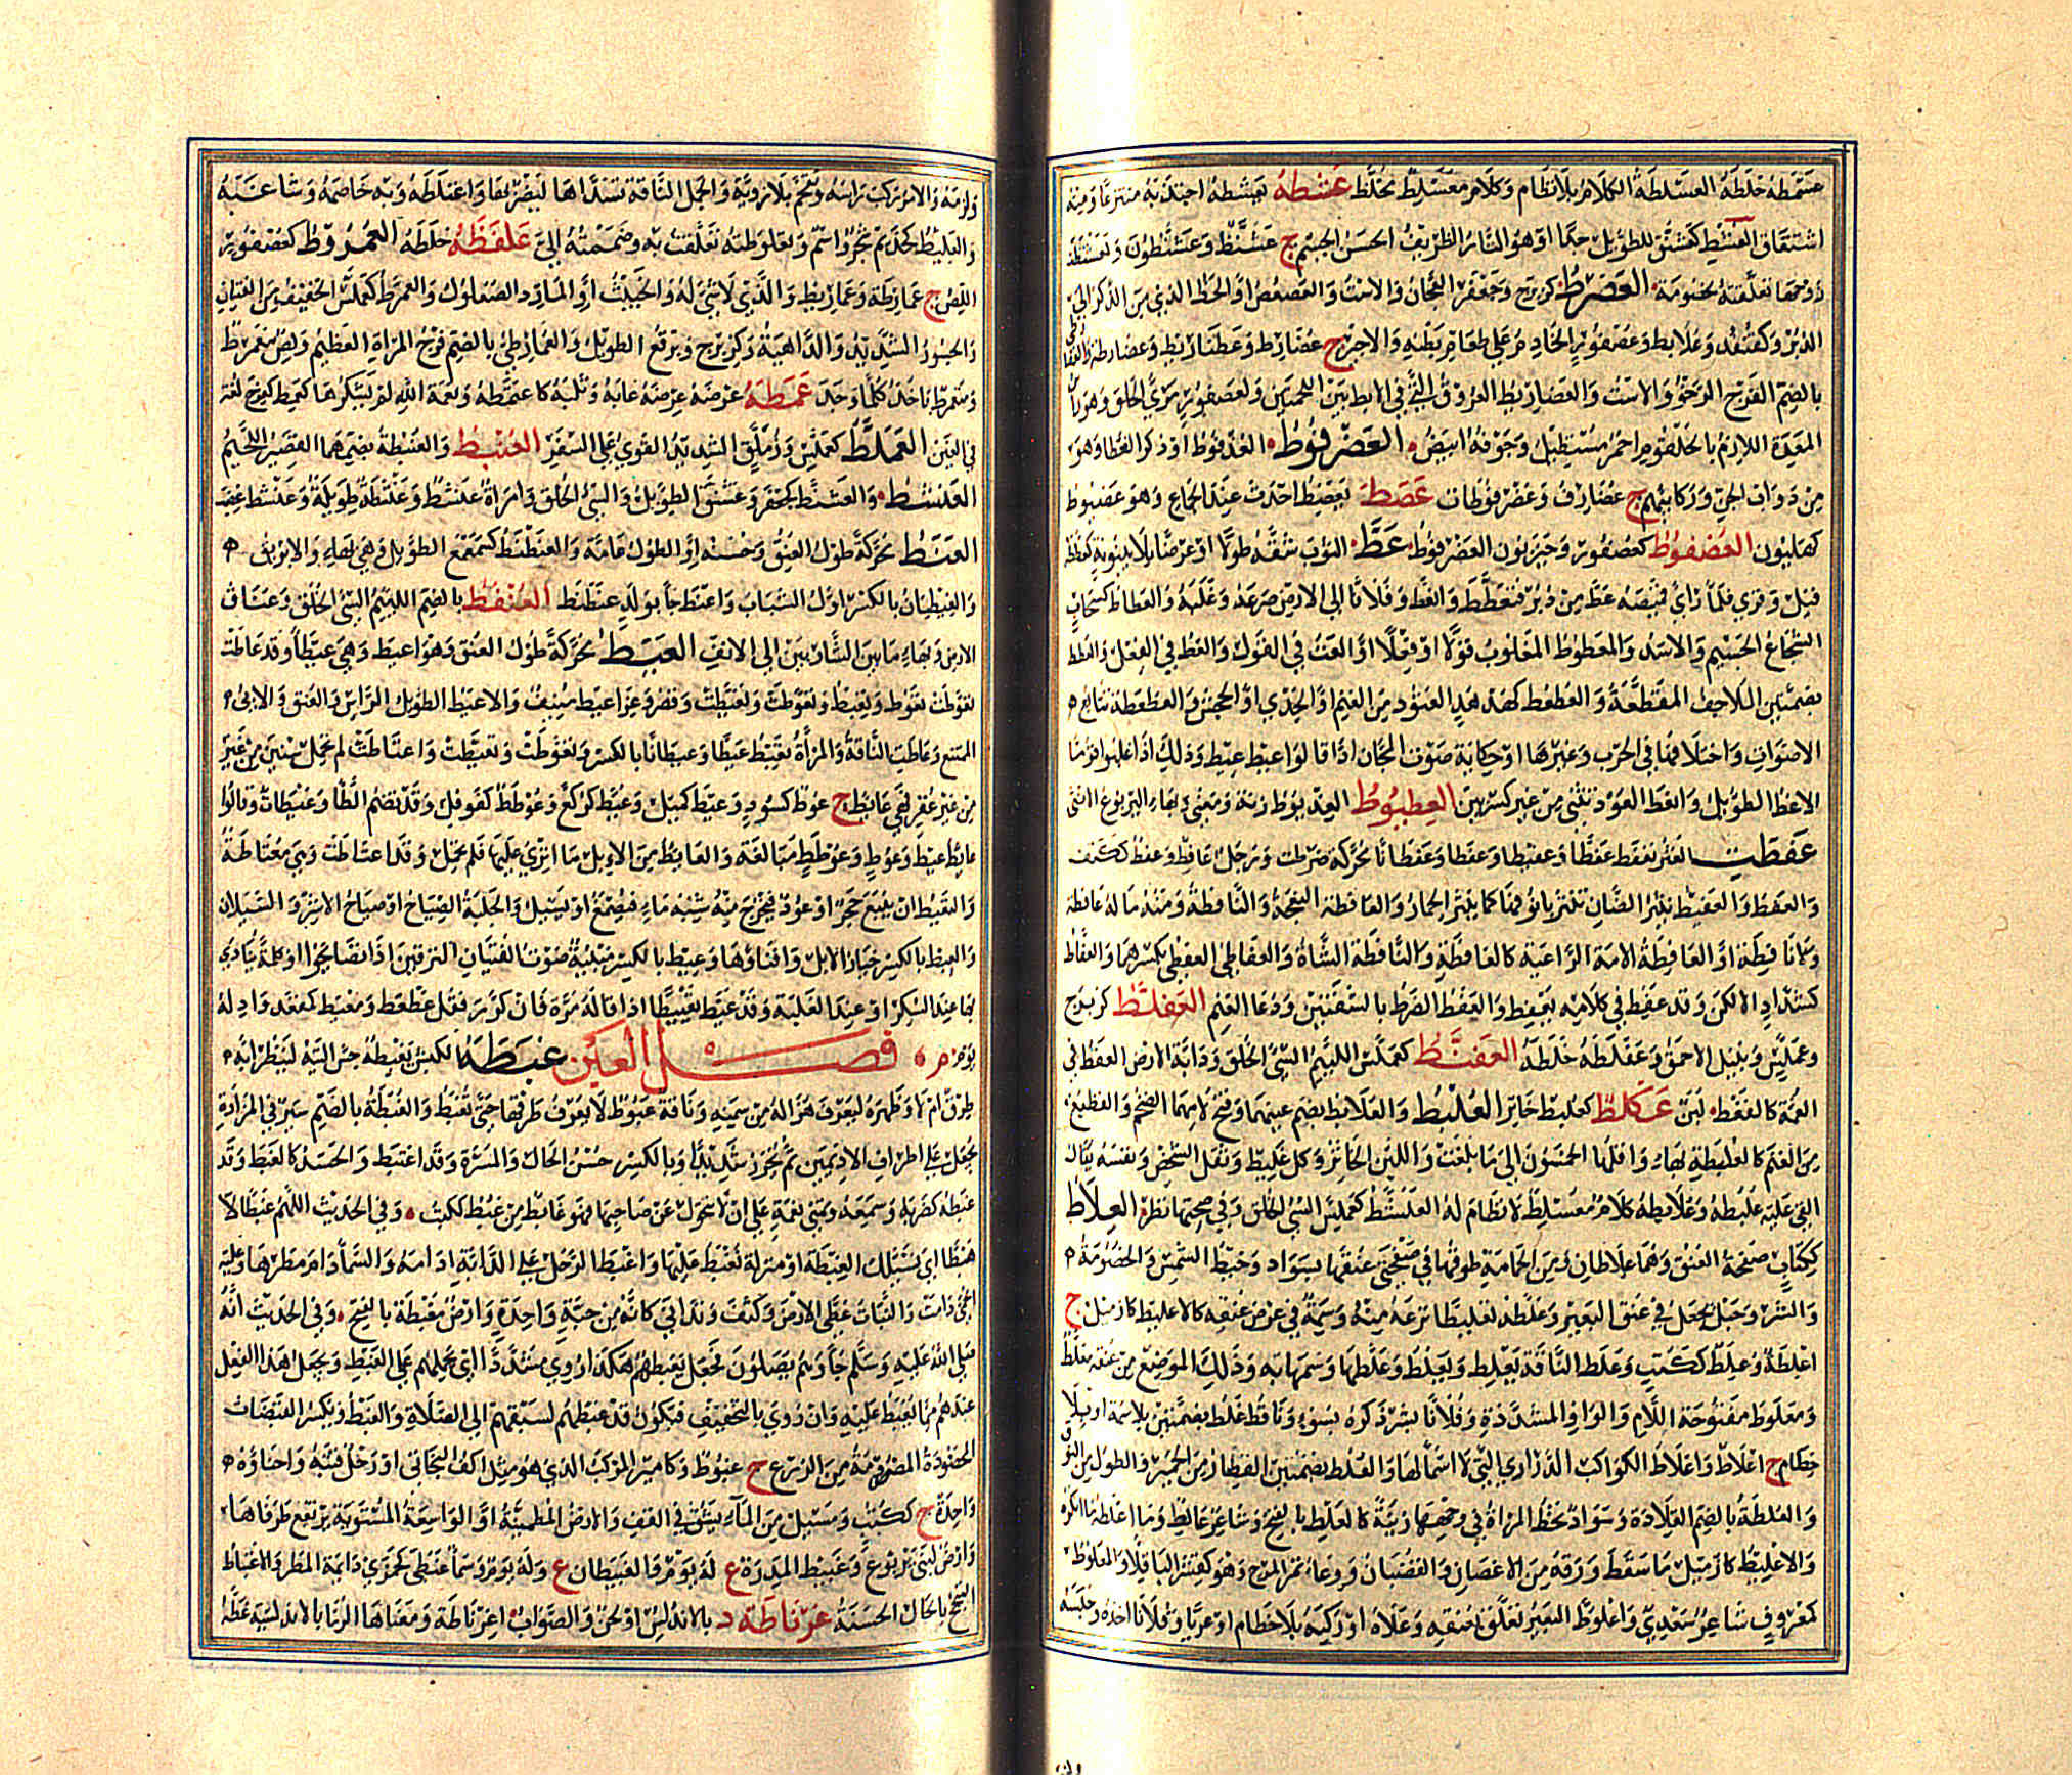 عسمطه خلطه العسلطة الكلام بلا نظام وكلام معسلط مخلط عشطه يعشطه اجتذبه منتزعا ومنه
اشتقاق العشنط كعشنق للطويل جدا او هو التار الظريف الحسن الجسم ج عشنط وعشنطون
تعلقته لخصومة العضرط كزبرج وجعفر العجان والاست والعصعص او الخط الذي من الذكر الى
الدبر وكقنفذ وعلابط وعصفور الخادم على طعام بطنه والاجير ج عضارط وعضاريط وعضارطة
بالضم الفرج الرخو والاست والعضاريط العروق التي في الابط بين اللحمتين وكعصفور مرئ الحلق وهو
المعدة اللازم بالحلقوم احمر مستطيل وجوفه ابيض العضرفوط العذفوط او ذكر العظا وهو
من دواب الجن وركائبهم ج عضارف وعضرفوطات عضط يعضط احدث عند الجماع وهو عضيوط
كهليون العضفوط كعصفور وحيزبون العضرفوط عط الثوب شقه طولا او عرضا بلا بينونة
قيل وقرئ فلما رأى قميصه عط من دبر فتعطط وانعط وفلانا الى الارض صرعه وغلبه والعطاط كسحاب
الشجاع الجسيم والاسد والمعطوط المغلوب قولا او فعلا او العت في القول والعط في الفعل والعطط
بضمتين الملاحف المقطعة والعطعط كهدهد العتود من الغنم او الجدي او الجحش والعطعطة تتابع
الاصوات واختلافها في الحرب وغيرها او حكاية صوت المجان اذا قالوا عيط عيط وذلك اذا غلبوا قوما
الاعط الطويل وانعط العود تثنى من غير كسر بين العظيوط العذيوط زنة ومعنى وبهاء اليربوع الانثى
عفطت العنز تعفط عفطا وعفيطا وعفطانا محركة ضرطت ورجل عافط وعفط ككتف
والعفط والعفيط نثير الضان تنثر بانوفها كما ينثر الحمار والعافطة النعجة والنافطة ومنه ما له عافطة
ولا نافطة او العافطة الامة الراعية كالعفاطة والنافطة الشاة والعفاطي والعفطي بكسرهما والعفاط
كشداد الالكن وقد عفط في كلامه يعفط والعفط الضرط بالشفتين ودعاء الغنم العفلط كزبرج
وعملس وزنبيل الاحمق وعفلطه خلطه العفنط كعملس اللئيم السيئ الخلق ودابة الارض العقط في
العمة كالقعط لبن عكلط كعلبط خاثر العلبط والعلابط بضم عينهما وفتح لامهما الضخم والقطيع
من الغنم كالعلبطة بهاء واقلها الخمسون الى ما بلغت واللبن الخاثر وكل غليظ وثقل الشخص ونفسه يقال
القى عليه علبطه وعلابطه كلام معسلط لا نظام له العلسط كعملس السيئ الخلق وفي صحتها نظر العلاط
ككتاب صفحة العنق وهما علاطان ومن الحمامة طوقها في صفحتي عنقها بسواد وخيط الشمس والخصومة
والشر وحبل يجعل في عنق البعير وعلطه تعليطا نزعه منه وسمة في عرض عنقه كالاعليط كازميل ج
اعلطة وعلط ككتب وعلط الناقة يعلط ويعلط وعلطها وسمها به وذلك الموضع من عنقه معلط
ومعلوط مفتوحة اللام والواو المشددة وفلانا بشر ذكره بسوء وناقة علط بضمتين بلا سمة او بلا
خطام ج اعلاط واعلاط الكواكب الدراري التي لا اسماء لها والعلط بضمتين القصار من الحمير والطوال من النوق
والعلطة بالضم القلادة وسواد تخطه المراة في وجهها زينة كالعلط بالفتح وشاعر عالط وما اعلطه ما انكره
والاعليط كازميل ما سقط ورقه من الاغصان والقضبان ووعاء ثمر المرخ وهو كقشر الباقلا والعلوط
كمعروف شاعر سعدي واعلوط البعير تعلق بعنقه وعلاه او ركبه بلا خطام او عريا وفلانا اخذه وحبسه
ولزمه والامر ركب راسه وتقحم بلا روية والجمل الناقة تسداها ليضربها واعتلطه وبه خاصمه وشاغبه
والعليط كحذيم شجر واسم وتعلوطته تعلقت به وضممته الي علفطه خلطه العمروط كعصفور
اللص ج عمارطة وعماريط والذي لا شيء له والخبيث او المارد الصعلوك والعمرط كعملس الخفيف من الفتيان
والجسور الشديد والداهية وكزبرج وبرقع الطويل والعمارطي بالضم فرج المراة العظيم ولص متعمرط
ومتعمرط ياخذ كلما وجد عمطه عرضه عابه وثلبه كاعتمطه ونعمة الله لم يشكرها كعمط كفرح لغة
في الغين العملط كعملس وزملق الشديد القوي على السفر العنبط والعنبطة بضمهما القصير اللحيم
العنشط والعشنط كجعفر وعشنق الطويل والسيئ الخلق وامراة عنشط وعنشطة طويلة وعنشط غضب
العنط محركة طول العنق وحسنه او الطول عامة والعنطنط كسمعمع الطويل وهي بهاء والابريق
والعنطيان بالكسر اول الشباب واعنط جاء بولد عنطنط العنفط بالضم اللئيم السيئ الخلق وعناق
الارض وبهاء ما بين الشاربين الى الانف العيط محركة طول العنق وهو اعيط وهي عيطا وقد عاطت
تعوط وتعيط وتعوطت وتعيطت وقصر وعز اعيط منيف والاعيط الطويل الراس والعنق والابي
الممتنع وعاطت الناقة والمراة تعيط عيطا وعيطانا بالكسر وتعوطت وتعيطت واعتاطت لم تحمل سنين من غير
من غير عقر فهي عائط ج عوط كسود وعيط كميل وعيط كركع وعوطط كقوفل وقد تضم الطا وعيطات وقالوا
عائط عيط وعوط وعوطط مبالغة والعائط من الابل ما انزي عليها فلم تحمل وقد اعتاطت وهي معتاطة
والتعيط ان ينبع حجر او عود فيخرج منه شبه ماء فيصمغ او يسيل والجلبة الصياح او صياح الاشر والسيلان
والعيط بالكسر خيار الابل وافتاؤها وعيط بالكسر مبنية صوت الفتيان النزقين اذا تصايحوا او كلمة ينادى
بها عند السكر او عند الغلبة وقد عيط تعييطا اذا قاله مرة فان كرر فقل عطعط ومعيط كمقعد واد له
يوم م فصل الغين غبطه الكبش يغبطه جس اليته لينظر ابه
طرق ام لا وظهره ليعرف هزاله من سمنه وناقة غبوط لا يعرف طرقها حتى تغبط والغبطة بالضم سير في المزادة
يجعل على اطراف الاديمين ثم يخرز شديدا وبالكسر حسن الحال والمسرة وقد اغتبط والحسد كالغبط وقد
غبطه كضربه وسمعه وتمنى نعمة على ان لا تتحول عن صاحبها فهو غابط من غبط ككتب وفي الحديث اللهم غبطا لا
هبطا اي نسئلك الغبطة او منزلة نغبط عليها واغبط الرحل على الدابة ادامه والسماء دام مطرها وعليه
الحمى دامت والنبات غطى الارض وكثف وتدانى كانه من حبة واحدة وارض مغبطة بالفتح وفي الحديث انه
صلى الله عليه وسلم جاء وهم يصلون فجعل يغبطهم هكذا روي مشددا اي يحملهم على الغبط ويجعل هذا الفعل
عندهم مما يغبط عليه وان روي بالتخفيف فيكون قد غبطهم لسبقهم الى الصلاة والغبط ويكسر القبضات
المحصودة المصرومة من الزرع ج غبوط وكامير المركب الذي هو مثل اكف البخاتي او رحل قتبه واحناؤه
واحدة ج ككتب ومسيل من الماء يشق في القف والارض المطمئنة او الواسعة المستوية يرتفع طرفاها
وارض لبني يربوع وغبيط المدرة ع له يوم والغبيطان ع وله يوم وسماء غبطى كجمزى دائمة المطر والاغتباط
التبجح بالحال الحسنة غرناطة د بالاندلس او لحن والصواب اغرناطة ومعناها الرمانة بالاندلسية غطه